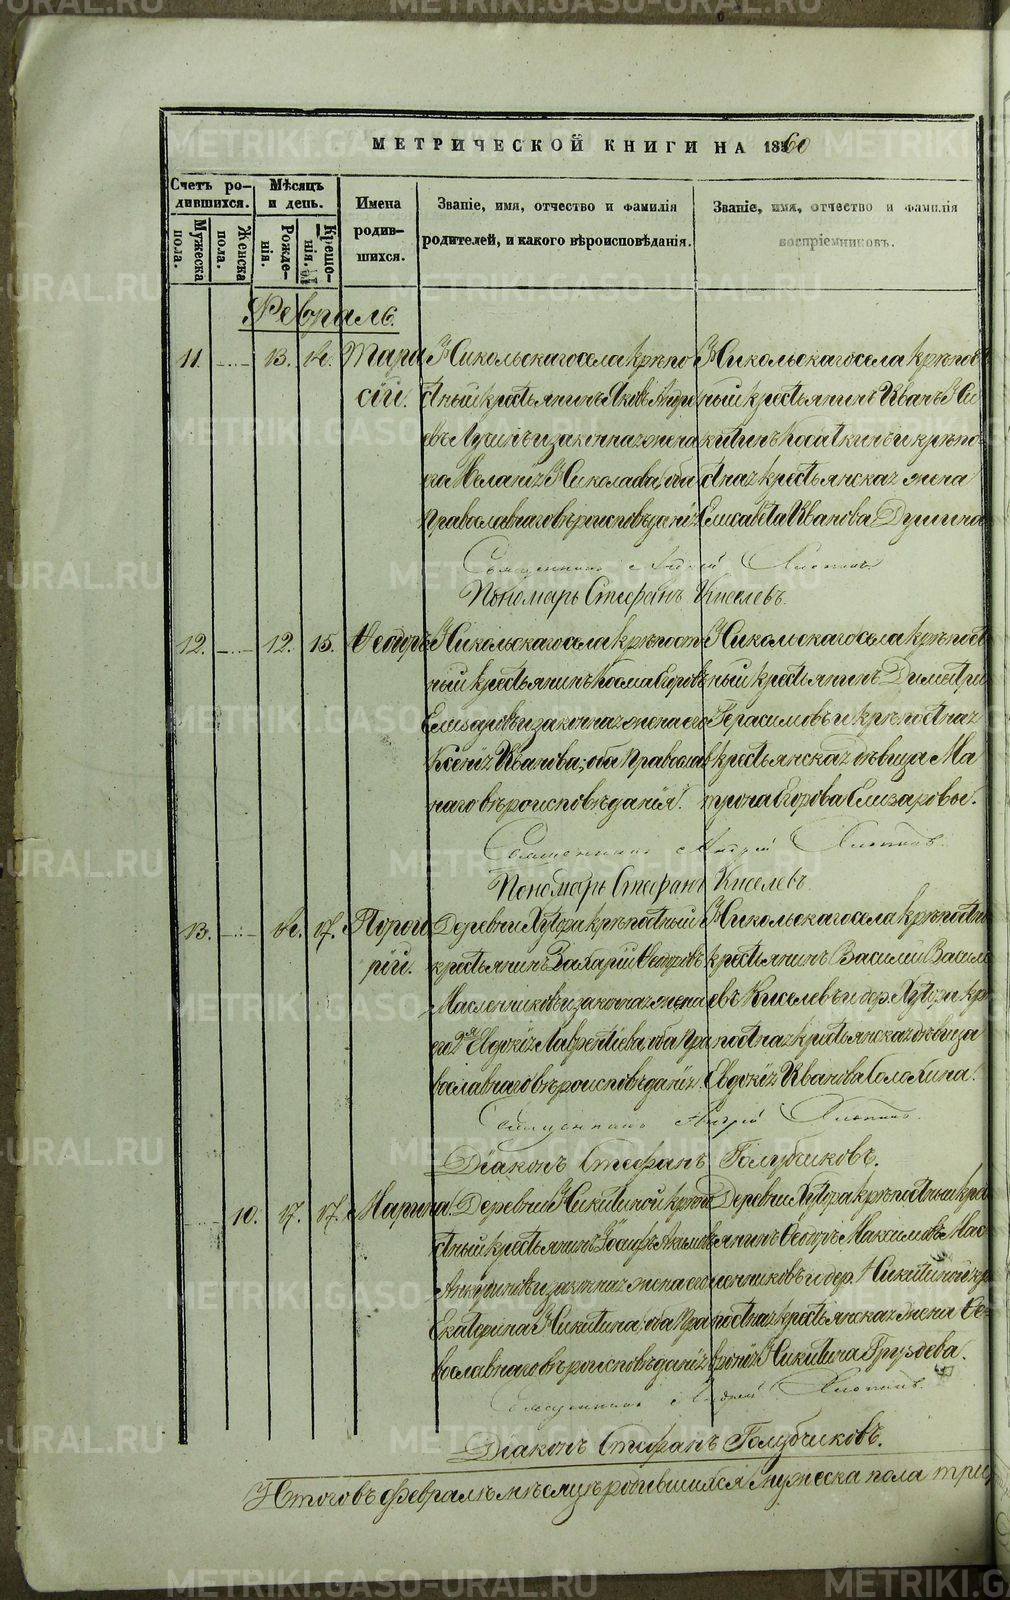 МЕТРИЧЕСКОЙ КНИГИ НА 1860
Счетъ ро-
дившихся.
Мужеска
пола.
Женска
пола.
Мѣсяцъ
и день.
Рожде-
нія.
Креще-
нія.
Имена
родив-
шихся.
Званіе, имя, отчество и фамилія
родителей, и какого вѣроисповѣданія.
Званіе, имя, отчество и фамилія
воспріемниковъ.
Февраль.
11. 13. 14. Тара
сій.
Никольскаго села крѣпо
стный крестьянинъ Яковъ Андре
евъ и законная жена
его Меланія Николаева, оба
православнаго вѣроисповѣданія
Никольскаго села крѣпост
ный крестьянинъ Иванъ Ни
китинъ и крѣпо
стная крестьянская жена
Елисавета Иванова Душина
Священникъ Андрей
Пономарь Стефанъ Киселевъ.
12. 12. 15. Ѳеодоръ
Никольскаго села крѣпост
ный крестьянинъ Косма Егоровъ
Елизаровъ и законная жена его
Ксенія Иванова, оба Православ
наго вѣроисповѣданія.
Никольскаго села крѣпост
ный крестьянинъ Димитрій
Герасимовъ и крѣпостная
крестьянская дѣвица Ма
трона Егорова Елизаровы.
Священникъ Андрей
Пономарь Стефанъ Киселевъ
13. 14. 17. Порфи
рій.
Деревни Хутора крѣпостный
крестьянинъ Захарій Ѳеодоровъ
Масленниковъ и законная жена
его Евдокія Лаврентіева, оба Пра
вославнаго вѣроисповѣданія.
Никольскаго села крѣпостн
крестьянинъ Василій Василь
евъ Киселевъ и дер. Хутора крѣ
постная крестьянская дѣвица
Евдокія Иванова
Священникъ Андрей
Діаконъ Стефанъ Голубчиковъ.
10. 17. 17. Марина
Деревни Никитиной крѣпо
стный крестьянинъ Іосифъ Акимовъ
и законная жена его
Екатерина Никитина, оба Пра
вославнаго вѣроисповѣданія
Деревни Хутора крѣпостный кре
стьянинъ Ѳеодоръ Максимовъ Мас
ленниковъ и дер. Никитиной крѣ
постная крестьянская жена Ѳе
вронія Никитина Груздева.
Священникъ Андрей
Діаконъ Стефанъ Голубчиковъ.
Итого въ Февралѣ мѣсяцѣ родившихся мужеска пола три
METRIKI.GASO-URAL.RU